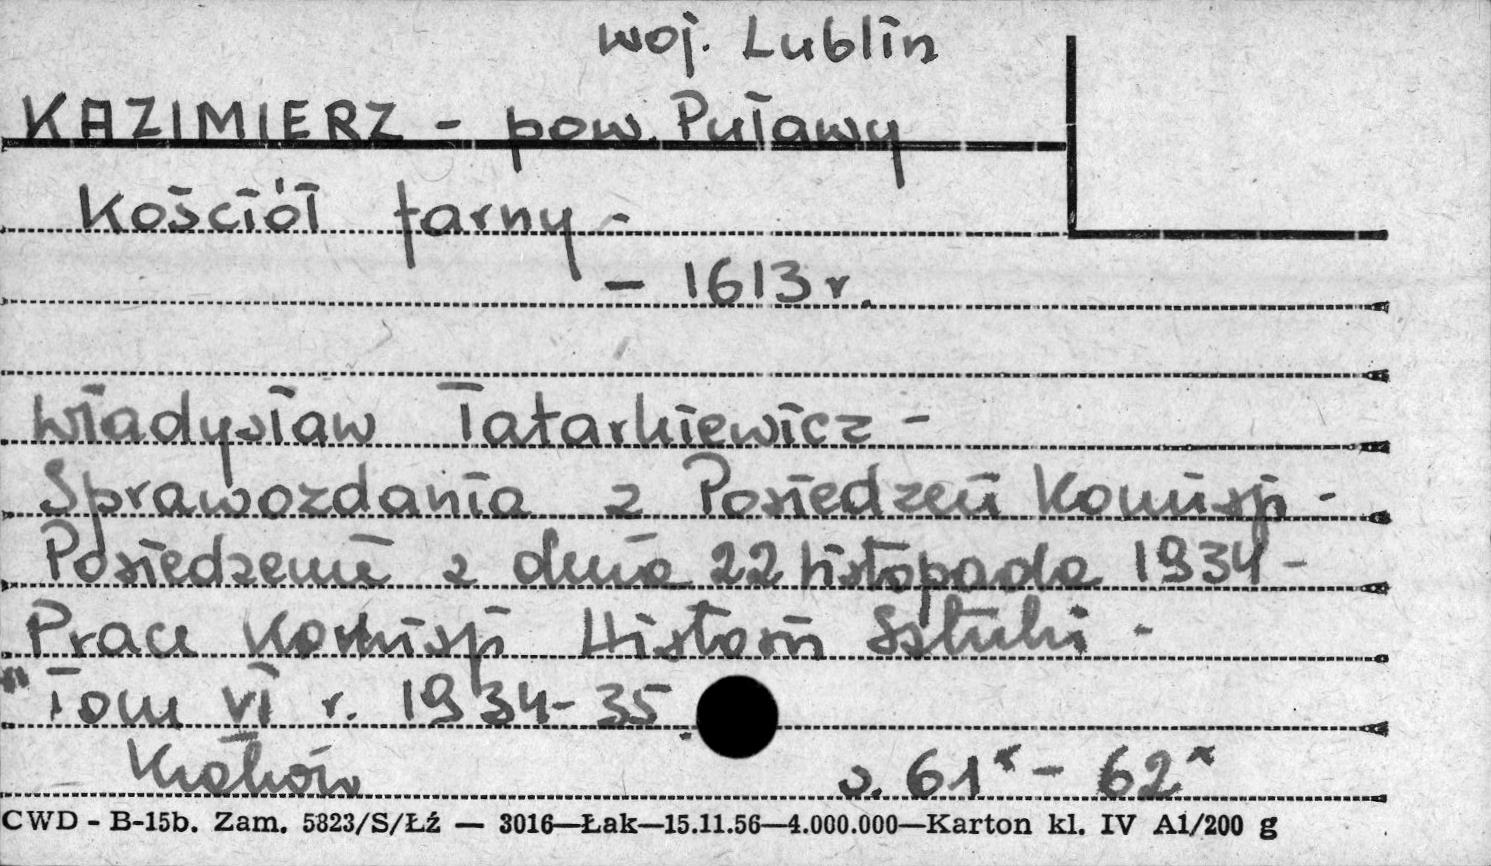 woj. Lublin
KAZIMIERZ - pow. Puławy
Kościół farny -
- 1613 r.
Władysław Tatarkiewicz -
Sprawozdania z Posiedzeń Komisji -
Posiedzenie z dnia 22 listopada 1934 -
Prace Komisji Historii Sztuki -
Tom VI r. 1934-35.
Kraków s. 61* - 62*
CWD - B-15b. Zam. 5823/S/Łź — 3016—Łak—15.11.56—4.000.000—Karton kl. IV A1/200 g